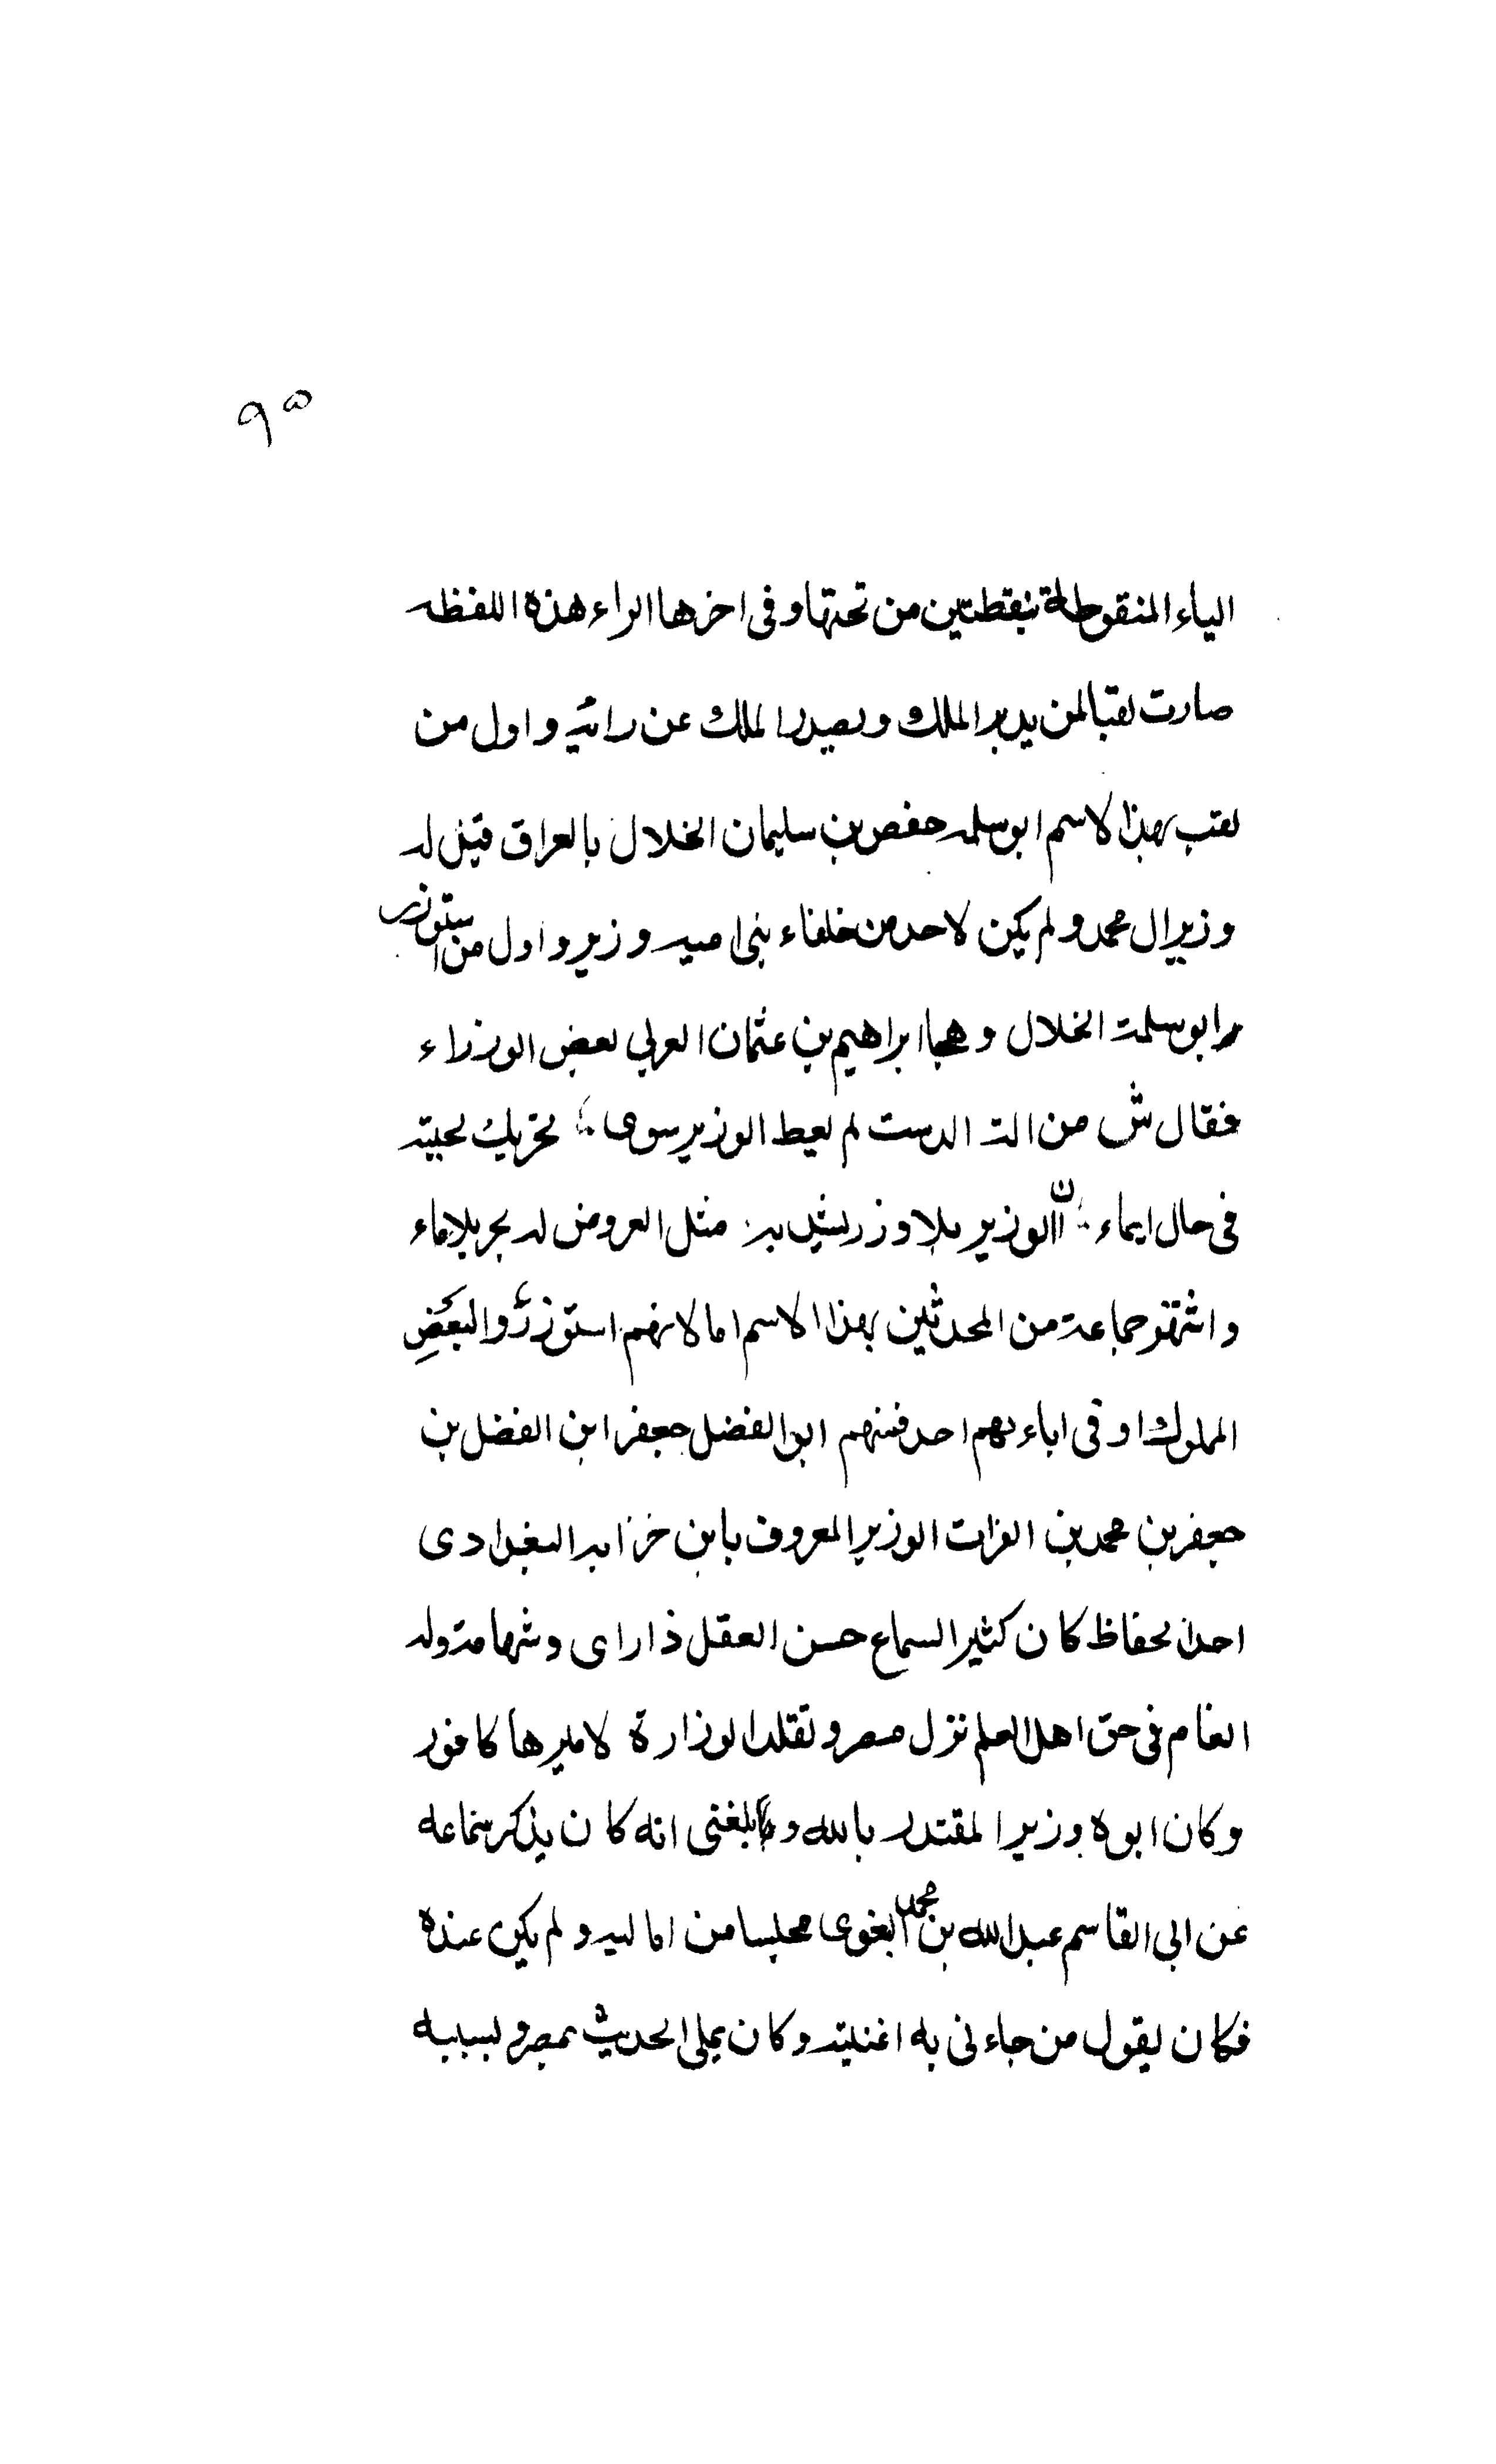 ٩٥
الياء المنقوطة بنقطتين من تحتها و فى اخرها الراء هذه اللفظه
صارت لقبا لمن يدبر الملك و يصدر الملك عن رائه و اول من
لقب بهذا الاسم ابو سلمه حفص بن سليمان الخلال بالعراق قيل له
وزير ال محمد و لم يكن لاحد من خلفاء بنى اميه وزير و اول من استوزر
ابو سلمة الخلال و هجا ابراهيم بن عثمان العربي بعض الوزراء
فقال ش من الة الدست لم يعط الوزير سوى ؛ تحريك لحيته
فى حال ايماء ؛ ان الوزير بلا وزر يشد به ؛ مثل العروض له بحر بلا ماء
و اشتهر جماعة من المحدثين بهذا الاسم اما لانهم استوزروا لبعض
الملوك او فى اباءهم احد فمنهم ابو الفضل جعفر ابن الفضل بن
جعفر بن محمد بن الفرات الوزير المعروف بابن خنزابه البغدادى
احد الحفاظ كان كثير السماع حسن العقل ذا راى و شهامة و له
انعام فى حق اهل العلم نزل مصر و تقلد الوزارة لاميرها كافور
و كان ابوه وزير المقتدر بالله و بلغنى انه كان يذكر سماعه
عن ابى القاسم عبد الله بن محمد البغوى مجلسا من اماليه و لم يكن عنده
فكان يقول من جاءنى به اغنيته و كان يملى الحديث بمصر و بسببه